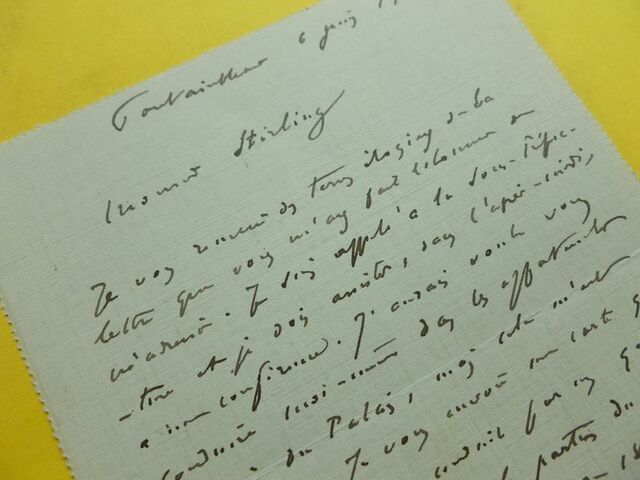 Fontainebleau 6 juin
Monsieur Stirling
Je vous remercie des termes élogieux de la
lettre que vous m'avez fait l'honneur de
m'adresser. Je suis appelé à la Sous-Préfec-
-ture et je dois assister, dans l'après-midi,
à une conférence. J'aurais voulu vous
conduire moi-même dans les appartements
du Palais, mais cela m'est
Je vous envoie une carte
conduit par un
parties du